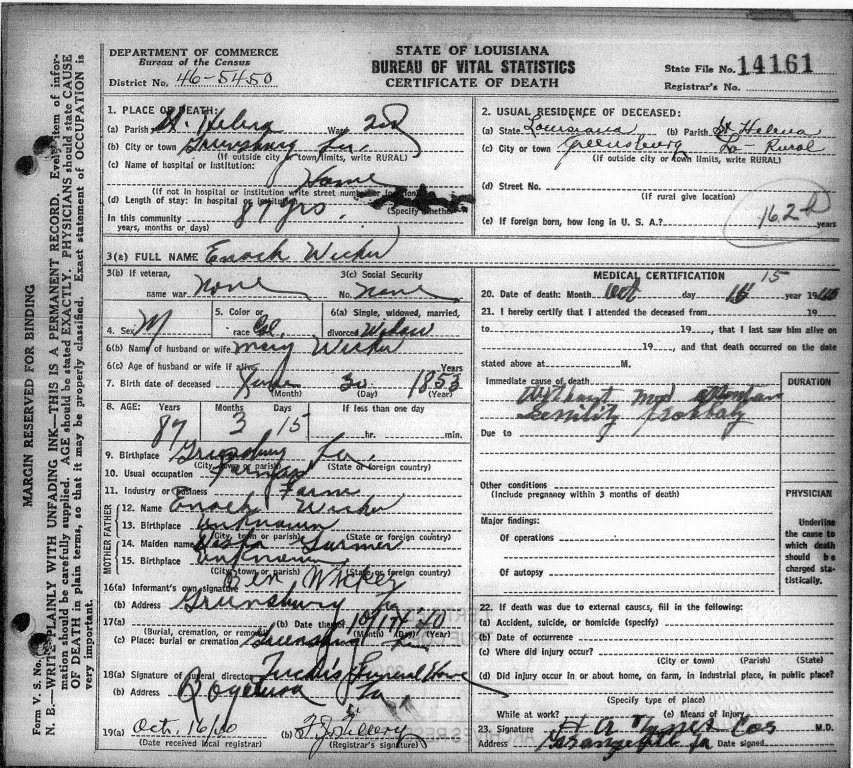 DEPARTMENT OF COMMERCE
Bureau of the Census
District No. 46-5450
STATE OF LOUISIANA
BUREAU OF VITAL STATISTICS
CERTIFICATE OF DEATH
State File No. 14161
Registrar's No.
MARGIN RESERVED FOR BINDING
N. B.—WRITE PLAINLY WITH UNFADING INK—THIS IS A PERMANENT RECORD. Every item of infor-
mation should be carefully supplied. AGE should be stated EXACTLY. PHYSICIANS should state CAUSE
OF DEATH in plain terms, so that it may be properly classified. Exact statement of OCCUPATION is
very important.
Form V. S. No.
1. PLACE OF DEATH:
(a) Parish St. Helena Ward 2nd
(b) City or town Greensburg La.
(If outside city or town limits, write RURAL)
(c) Name of hospital or Institution:
Home
(If not in hospital or institution write street number or location)
(d) Length of stay: In hospital or Institution
(Specify whether
In this community 87 yrs.
years, months or days)
2. USUAL RESIDENCE OF DECEASED:
(a) State Louisiana (b) Parish St Helena
(c) City or town Greensburg La - Rural
(If outside city or town limits, write RURAL)
(d) Street No.
(If rural give location)
(e) If foreign born, how long in U. S. A.? years
162
3(a) FULL NAME Enoch Wicker
3(b) If veteran,
name war none
3(c) Social Security
No. none
4. Sex M
5. Color or
race Col.
6(a) Single, widowed, married,
divorced Widow
6(b) Name of husband or wife Mary Wicker
6(c) Age of husband or wife if alive Years
7. Birth date of deceased June 30 1853
(Month) (Day) (Year)
8. AGE: Years Months Days If less than one day
87 3 15 hr. min.
9. Birthplace Greensburg La.
(City, town or parish) (State or foreign country)
10. Usual occupation Farmer
11. Industry or business Farm
MOTHER FATHER
12. Name Enoch Wicker
13. Birthplace Unknown
(City, town or parish) (State or foreign country)
14. Maiden name Turner
15. Birthplace Unknown
(City, town or parish) (State or foreign country)
16(a) Informant's own signature Ben Wicker
(b) Address Greensburg La
17(a) (b) Date thereof 10/17/40
(Burial, cremation, or removal) (Month) (Day) (Year)
(c) Place: burial or cremation Greensburg La
18(a) Signature of funeral director Funeral Home
(b) Address La
19(a) Oct. 16/40 (b)
(Date received local registrar) (Registrar's signature)
MEDICAL CERTIFICATION
20. Date of death: Month Oct day 15 year 1940
21. I hereby certify that I attended the deceased from 19
to 19 , that I last saw him alive on
19 , and that death occurred on the date
stated above at M.
Immediate cause of death
DURATION
Without Med attention
Senility probably
Due to
Other conditions
(Include pregnancy within 3 months of death)
PHYSICIAN
Major findings:
Of operations
Of autopsy
Underline
the cause to
which death
should be
charged sta-
tistically.
22. If death was due to external causes, fill in the following:
(a) Accident, suicide, or homicide (specify)
(b) Date of occurrence
(c) Where did injury occur?
(City or town) (Parish) (State)
(d) Did injury occur in or about home, on farm, in industrial place, in public place?
(Specify type of place)
While at work? (e) Means of Injury
23. Signature M.D.
Address La Date signed